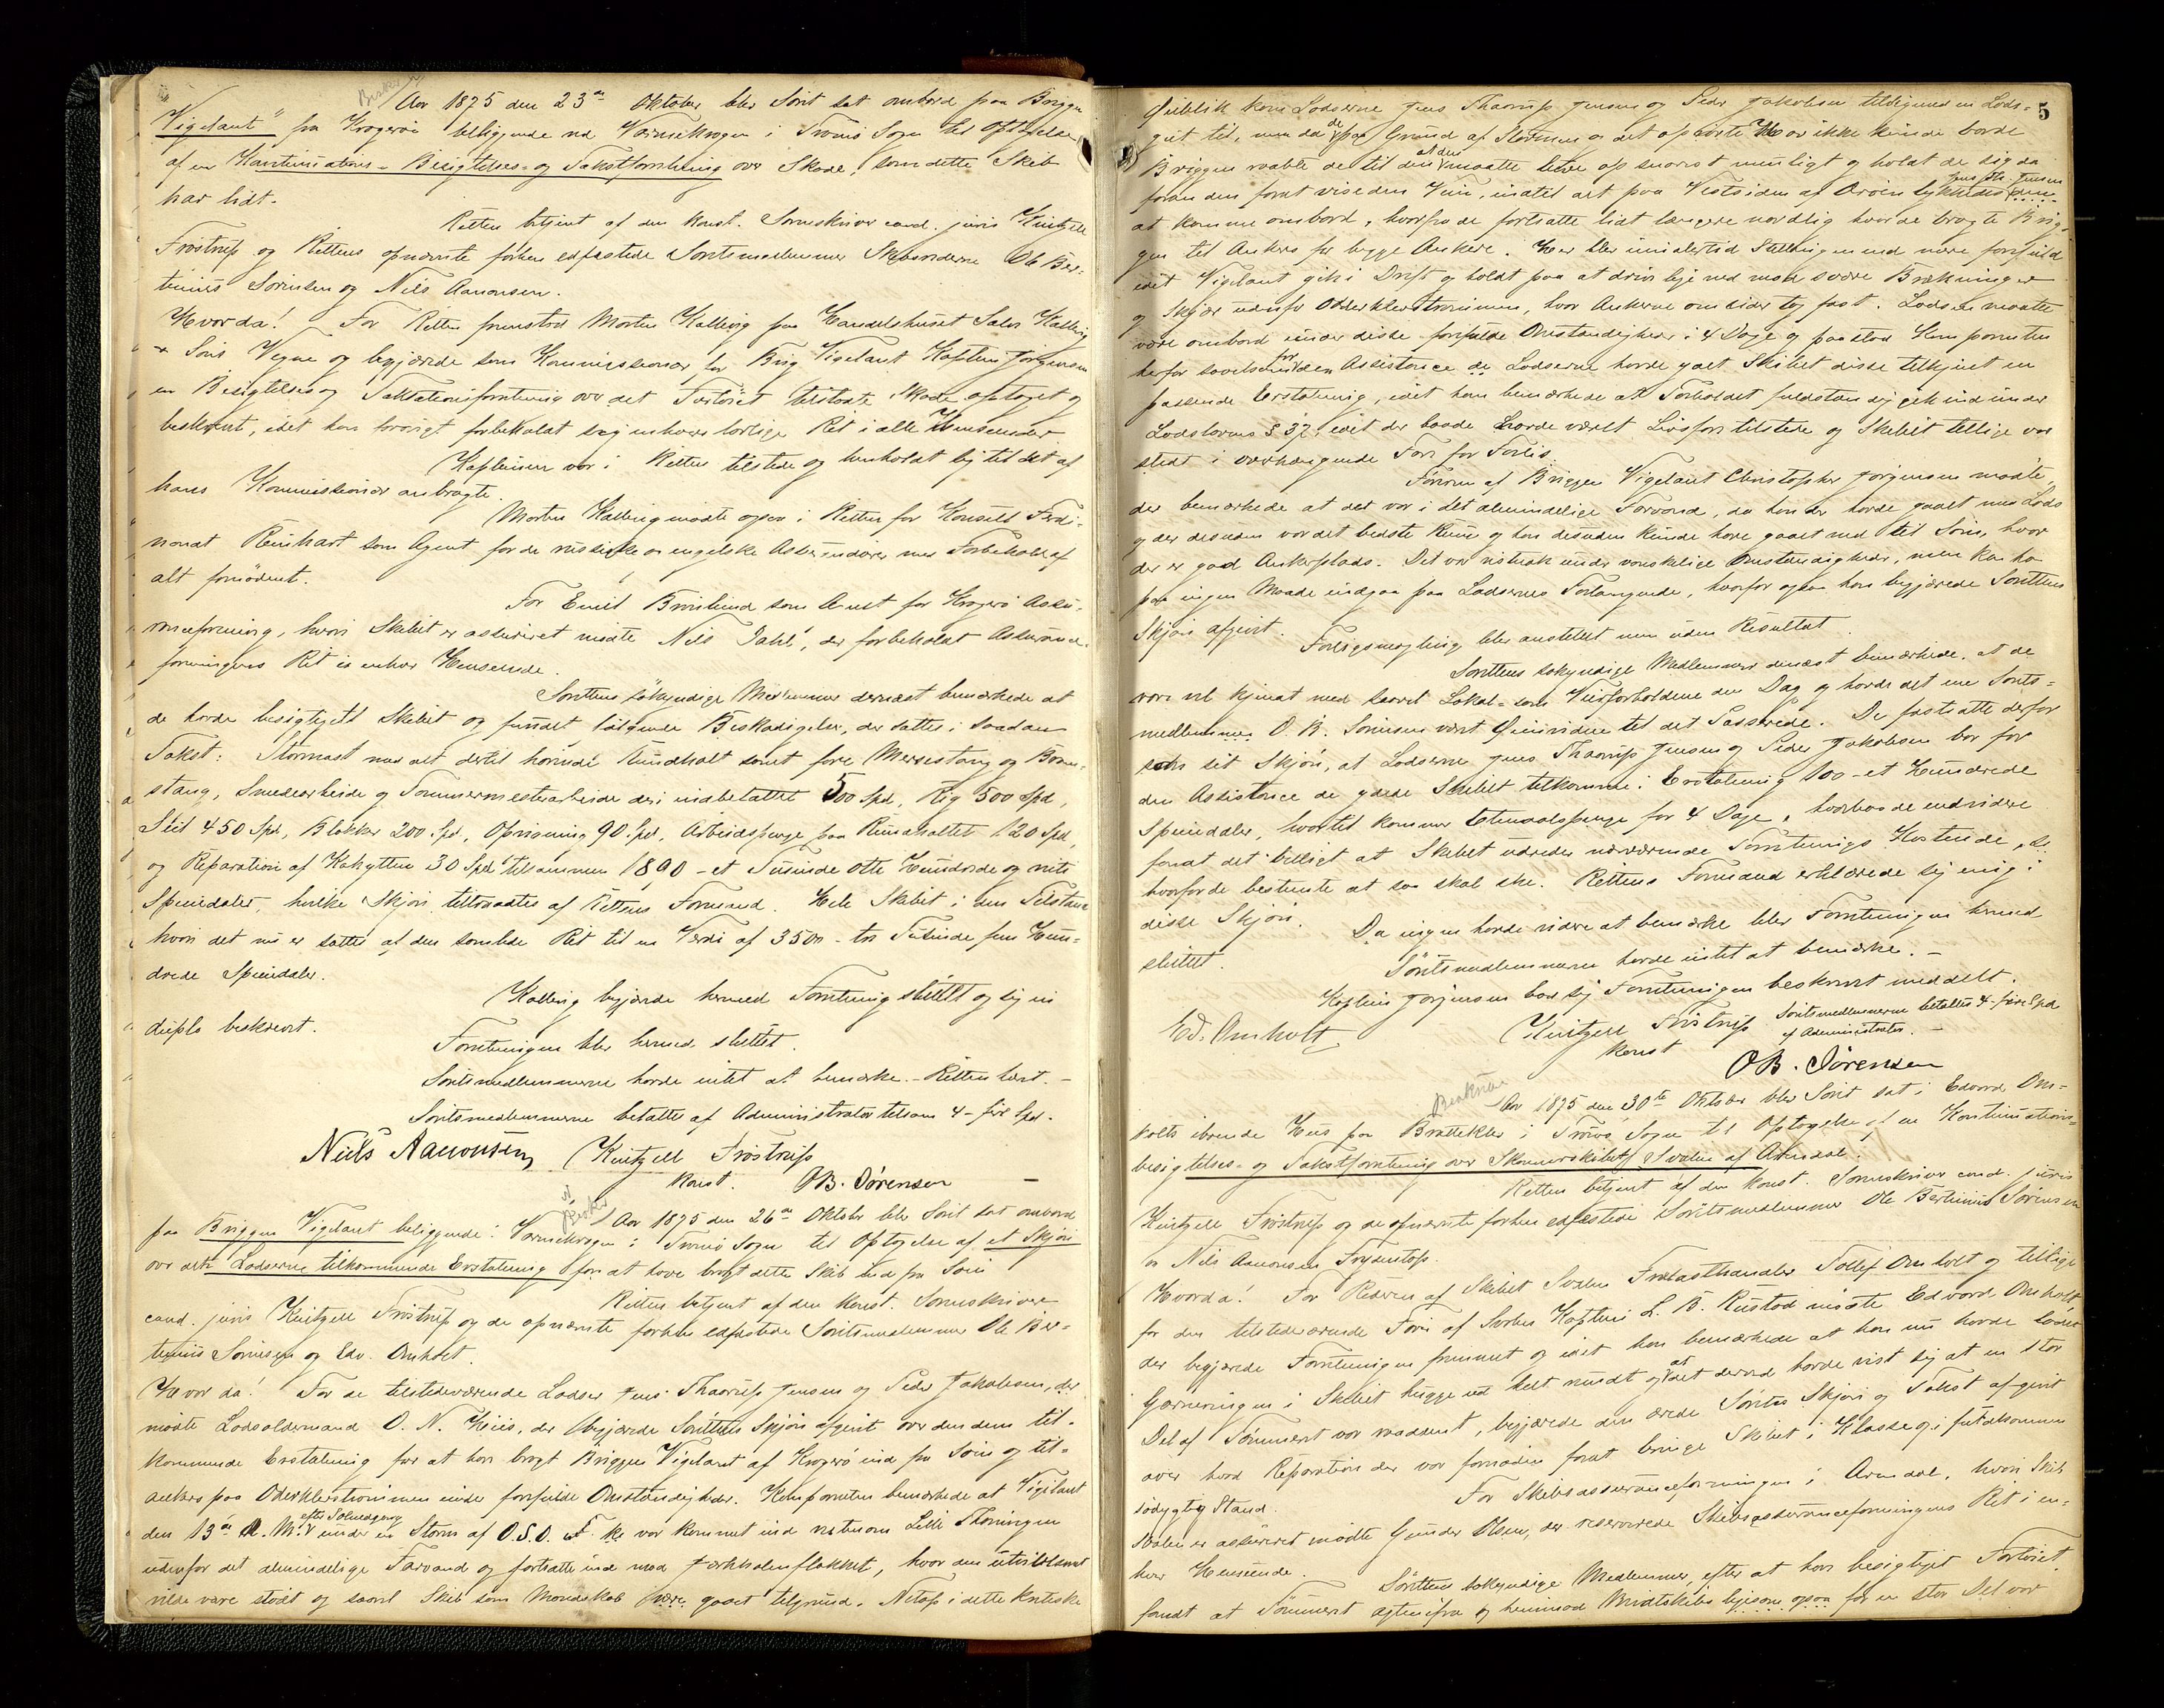 Beskr.
Aar 1875 den 23de Oktober blev Söret sat ombord paa Briggen
"Vigelant" fra Kragerøe beliggende ved Værnskrogen i Tromö Sogn til Optagelse
af en Kantinuations- Besigtelses- og Takstforretning over Skade, som dette Skib
har lidt.
Retten betjent af den konst. Sorenskriver cand. juris Kintzell
Tröstrup og Rettens opnævnte forhen edfæstede Söretsmedlemmer Skibsrederne Ole Ber-
tinius Sörensen og Nils Aanonsen.
Hvor da! For Retten fremstod Morten Kallevig paa Handelshuset Salve Kallevig
& Söns Vegne og begjærede som Kommissionær for Brig Vigelant Kaptein Jörgensen
en Besigtelses og Taksationsforretning over det Fartöiet tilstödte Skade optaget og
beskrevet, idet han forövrigt forbeholdt sig enhver lovlige Ret i alle Henseender
Kapteinen var i Retten tilstede og henholdt sig til det af
hans Kommissionær anbragte.
Morten Kallevig mödte ogsaa i Retten for Konsul Ferdi-
nandt Reinhart som Agent for de russiske og engelske Assurandører med Forbehold af
alt fornödent.
For Emil Biörnlund som Agent for Kragerö Assu-
ranceforening, hvori Skibet er assureret mödte Nils Dahl, der forbeholdt Assurance-
foreningens Ret i enhver Henseende.
Sörettens sökyndige Medlemmer dernæst bemærkede at
de havde besigtiget Skibet og fundet fölgende Beskadigelser, der sattes i saadan
Takst: Stormast med alt dertil hörende Rundholt samt fore Mersestang og Bram-
stang, Smedearbeide og Tömmermesterarbeide deri indbefattet 500 Spd, Rig 500 Spd,
Seil 450 Spd, Blokker 200 Spd, Oprigning 90 Spd, Arbeidspenge paa Rundholtet 120 Spd,
og Reparation af Kahytten 30 Spd tilsammen 1890 - et Tusinde otte Hundrede og niti
Speciedaler, hvilke Skjön tiltraadtes af Rettens Formand. Hele Skibet i den Tilstand
hvori det nu er sattes af den samlede Ret til en Værdi af 3500 - tre Tusinde fem Hun-
drede Speciedaler.
Kallevig begjærede hermed Forretning sluttet og sig in
duplo beskrevet.
Forretningen blev hermed sluttet.
Söretsmedlemmerne havde intet at bemærke. - Retten hævet. -
Söretsmedlemmerne betaltes af Administrator tilsam 4 - fire Spd.
Niels Aanonsen Kintzell Tröstrup
konst. OB. Sörensen
Beskr.
Aar 1875 den 26de Oktober blev Söret sat ombord
paa Briggen Vigelant beliggende i Værnskrogen i Tromö Sogn til Optagelse af et Skjön
over den Lodserne tilkommende Erstatning for at have bragt dette Skib ind fra Söen
Retten betjent af den konst. Sorenskriver
cand. juris Kintzell Tröstrup og de opnævnte forhen edfæstede Söretsmedlemmer Ole Ber-
tinius Sörensen og Edv. Omholt.
Hvor da! For de tilstedeværende Lodser Jens Thaarup Jensen og Peder Jakobsen, der
mödte Lodsoldermand O. N. Hiis, der begjærede Sörettens Skjön afgivt over den dem til-
kommende Erstatning for at have bragt Briggen Vigelant af Kragerö ind fra Söen og til-
ankers paa Oderklevströmmen under farefulde Omstændigheder. Komparenten bemærkede at Vigilant
den 13de d. M. efter Solnedgang under en Storm af O.S.O. var kommet ind mellem Lille Thorungen
udenfor det almindelige Farvand og fortsatte ind mod Jerkholmflakket, hvor den utvivlsomt
vilde være stödt og saavel Skib som Mandskab være gaaet tilgrund. Netop i dette kritiske
5
Öieblik kom Lodserne Jens Thaarup Jensen og Peder Jakobsen tilligemed en Lods-
gut til, men da de paa Grund af Stormen og det oprörte Hav ikke kunde borde
Briggen raabte de til den at den maatte luve op snarest muligt og holdt de sig da
foran den forat vise den Vei, indtil det paa Vestsiden af Aröen lykkedes Jens Th. Jensen
at komme ombord, hvorpaa de fortsatte lidt længere nordlig hvor de bragte Brig-
gen til Ankers for begge Ankere. Her blev imidlertid Stillingen end mere farefuld
idet Vigelant gik i Drift og holdt paa at drive lige ned mod svære Brækninger
og Skjær udenfor Odderklevströmmen, hvor Ankerne omsider tog fast. Lodsen maatte
være ombord under disse farefulde Omstændigheder i 4 Dage og paastod Komparenten
herfor saavelsom for den Assistance de Lodserne havde ydet Skibet disse tilkjent en
passende Erstatning, idet han bemærkede at Forholdet fuldstændig gik ind under
Lodslovens § 37, idet der baade havde været Livsfare tilstede og Skibet tillige var
stedt i overhængende Fare for Forlis.
Föreren af Briggen Vigelant Christopher Jörgensen mödte,
der bemærkede at det var i det almindelige Farvand, da han der havde gaaet med Lods
og der desuden var det bedste Rum og han desuden kunde have gaaet ned til Söm, hvor
der er god Ankerplads. Det var vistnok under vanskelige Omstændigheder, men kan han
paa ingen Maade indgaa paa Lodsernes Forlangende, hvorfor ogsaa han begjærede Sörettens
Skjön afgivt.
Forligsmægling blev anstillet men uden Resultat.
Sörettens sökyndige Medlemmer dernæst bemærkede, at de
var vel kjendt med saavel Lokal- som Veirforholdene den Dag og havde det ene Sörets-
medlemmer O. B. Sörensen været Öienvidne til det Passerede. De fastsatte derfor
som sit Skjön, at Lodserne Jens Thaarup Jensen og Peder Jakobsen bör for
den Assistance de ydede Skibet tilkomme i Erstatning 100 - et Hundrede
Speciedaler, hvortil kommer Ottendalspenge for 4 Dage, hvorhos de endvidere
fandt det billigt at Skibet udreder nærværende Forretnings Kostende,
hvorfor de bestemte at saa skal ske. Rettens Formand erklærede sig enig i
disse Skjön.
Da ingen havde videre at bemærke blev Forretningen hermed
sluttet.
Söretsmedlemmerne havde intet at bemærke. -
Kaptein Jörgensen bad sig Forretningen beskrevet meddelt.
Ed. Omholt Kintzell Tröstrup Söretsmedlemmerne betaltes 4 - fire Spd
konst af Administrator. -
OB. Sörensen
Beskrev
Aar 1875 den 30te Oktober blev Söret sat i Edvard Om-
holts iboende Hus paa Brattekleiv i Tromö Sogn til Optagelse af en Kontinuations-
besigtelses- og Takstforretning over Skonnerskibet Svalen af Arendal.
Retten betjent af den konst. Sorenskriver cand. juris
Kintzell Tröstrup og de opnævnte forhen edfæstede Söretsmedlemmer Ole Bertinius Sörensen
og Nils Aanonsen
Hvor da! For Rederen af Skibet Svalen Trælasthandler Tollef Omholt og tillige
for den tilstedeværende Förer af Svalen Kaptein L. B. Rustad mödte Edvard Omholt,
der begjærede Forretningen fremmet og idet han bemærkede at han nu havde ladet
Garneringen i Skibet hugge ud helt rundt og at det derved havde vist sig at en stor
Del af Tömmeret var raaddent, begjærede den ærede Sörets Skjön og Takst afgivt
over hvad Reparation der var fornöden forat bringe Skibet i Klasse og i fuldkommen
södygtig Stand.
For Skibsassuranceforeningen i Arendal, hvori Skib
Svalen er assureret mödte Gunder Olsen, der reserverede Skibsassuranceforeningens Ret i en-
hver Henseende.
Sörettens sökyndige Medlemmer, efter at have besigtiget Fartöiet,
fandt at Tömmeret agtenifra og henimod Midtskibs ligesom ogsaa for en stor Del var